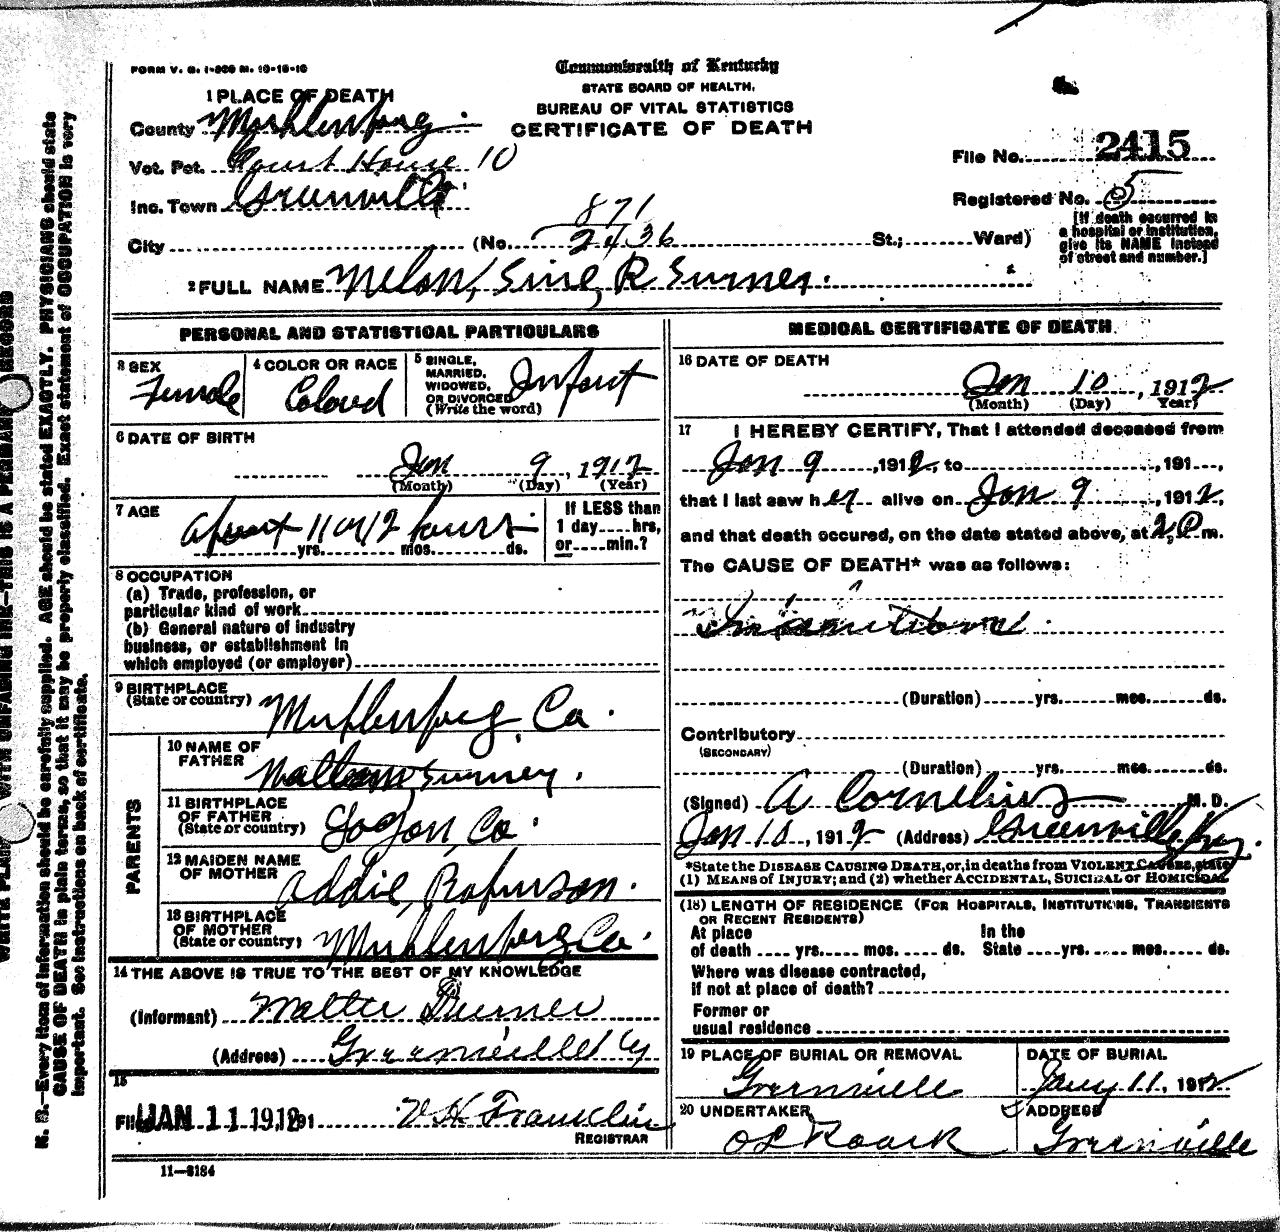 FORM V. S. 1-
Commonwealth of Kentucky
STATE BOARD OF HEALTH.
BUREAU OF VITAL STATISTICS
CERTIFICATE OF DEATH
1 PLACE OF DEATH
County Muhlenberg
Vot. Pct. Court House 10
Inc. Town Greenville
City (No. St.; Ward)
871
2436
File No. 2415
Registered No. 5
[If death occurred in
a hospital or institution,
give its NAME instead
of street and number.]
2 FULL NAME R
PERSONAL AND STATISTICAL PARTICULARS
3 SEX
Female
4 COLOR OR RACE
Colored
5 SINGLE,
MARRIED,
WIDOWED,
OR DIVORCED
(Write the word)
Infant
6 DATE OF BIRTH
Jan 9, 1912
(Month) (Day) (Year)
7 AGE
about 11 or 12 hours
yrs. mos. ds.
If LESS than
1 day hrs,
or min.?
8 OCCUPATION
(a) Trade, profession, or
particular kind of work
(b) General nature of industry
business, or establishment in
which employed (or employer)
9 BIRTHPLACE
(State or country)
Muhlenberg, Co.
PARENTS
10 NAME OF
FATHER
11 BIRTHPLACE
OF FATHER
(State or country)
Logan, Co.
12 MAIDEN NAME
OF MOTHER
Addie, Robinson.
13 BIRTHPLACE
OF MOTHER
(State or country)
Muhlenberg Co.
14 THE ABOVE IS TRUE TO THE BEST OF MY KNOWLEDGE
(Informant) Walter
(Address) Greenville Ky
15
Filed JAN 11 1912 191
V H Franklin
REGISTRAR
11-3184
MEDICAL CERTIFICATE OF DEATH
16 DATE OF DEATH
Jan 10, 1912
(Month) (Day) Year)
17 I HEREBY CERTIFY, That I attended deceased from
Jan 9, 1912, to , 191 ,
that I last saw her alive on Jan 9, 1912,
and that death occured, on the date stated above, at 2 P. m.
The CAUSE OF DEATH* was as follows:
(Duration) yrs. mos. ds.
Contributory
(SECONDARY)
(Duration) yrs. mos. ds.
(Signed) A Cornelius M. D.
Jan 10, 1912 (Address) Greenville Ky.
*State the DISEASE CAUSING DEATH, or, in deaths from VIOLENT CAUSES, state
(1) MEANS of INJURY; and (2) whether ACCIDENTAL, SUICIDAL or HOMICIDAL
(18) LENGTH OF RESIDENCE (FOR HOSPITALS, INSTITUTIONS, TRANSIENTS
OR RECENT RESIDENTS)
At place In the
of death yrs. mos. ds. State yrs. mos. ds.
Where was disease contracted,
if not at place of death?
Former or
usual residence
19 PLACE OF BURIAL OR REMOVAL
Greenville
DATE OF BURIAL
Jany 11, 1912
20 UNDERTAKER
O L Roark
ADDRESS
Greenville
N. B.—Every item of information should be carefully supplied. AGE should be stated EXACTLY. PHYSICIANS should state
CAUSE OF DEATH in plain terms, so that it may be properly classified. Exact statement of OCCUPATION is very
important. See instructions on back of certificate.
WITH UNFADING INK—THIS IS A PERMANENT RECORD